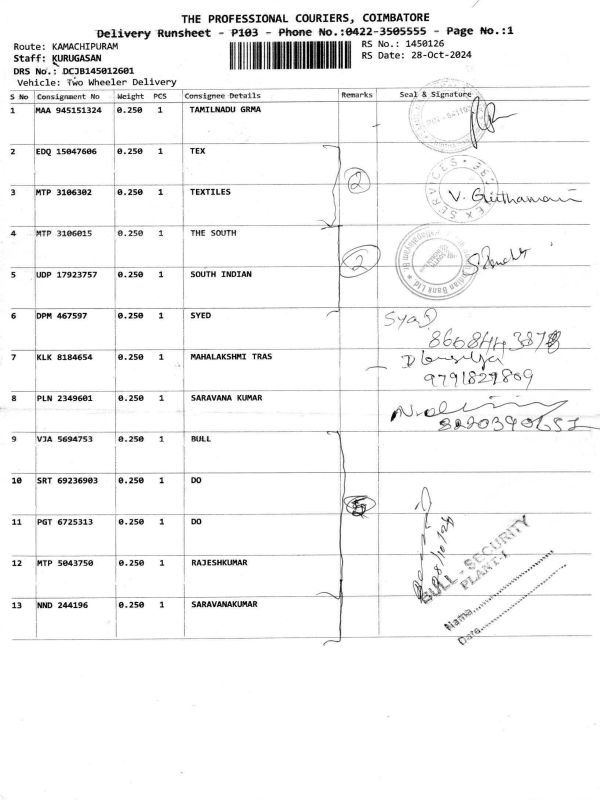 THE PROFESSIONAL COURIERS, COIMBATORE
Delivery Runsheet - P103 - Phone No.:0422-3505555 - Page No.:1
Route: KAMACHIPURAM
RS No.: 1450126
Staff: KURUGASAN
RS Date: 28-Oct-2024
DRS No.: DCJB145012601
Vehicle: Two Wheeler Delivery
S No Consignment No Weight PCS Consignee Details Remarks Seal & Signature
1 MAA 945151324 0.250 1 TAMILNADU GRMA
2 EDQ 15047606 0.250 1 TEX
2
3 MTP 3106302 0.250 1 TEXTILES
4 MTP 3106015 0.250 1 THE SOUTH
2
5 UDP 17923757 0.250 1 SOUTH INDIAN
6 DPM 467597 0.250 1 SYED
Syed
7 KLK 8184654 0.250 1 MAHALAKSHMI TRAS
9791829809
8 PLN 2349601 0.250 1 SARAVANA KUMAR
9 VJA 5694753 0.250 1 BULL
10 SRT 69236903 0.250 1 DO
5
11 PGT 6725313 0.250 1 DO
28/10/24
BULL - SECURITY
PLANT-1
12 MTP 5043750 0.250 1 RAJESHKUMAR
13 NND 244196 0.250 1 SARAVANAKUMAR
Name
Date